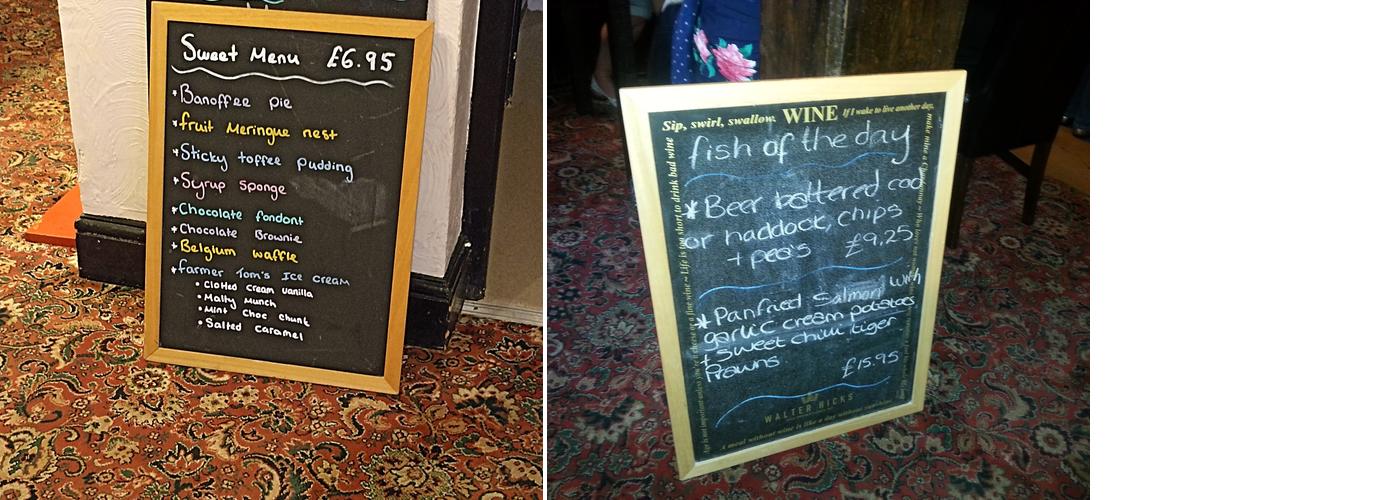 Sweet Menu £6.95
*Banoffee pie
*fruit Meringue nest
*Sticky toffee pudding
*Syrup sponge
*Chocolate fondant
*Chocolate Brownie
*Belgium waffle
*farmer Tom's Ice cream
• Clotted cream vanilla
• Malty Munch
• Mint choc chunk
• Salted caramel
Sip, swirl, swallow. WINE If I wake to live another day,
make mine a Chardonnay
Life is too short to drink bad wine
fish of the day
*Beer battered cod
or haddock, chips
+ peas £9.25
*Panfried salmon with
garlic cream potatoes
+ sweet chilli tiger
Prawns £15.95
WALTER HICKS
A meal without wine is like a day without sunshine